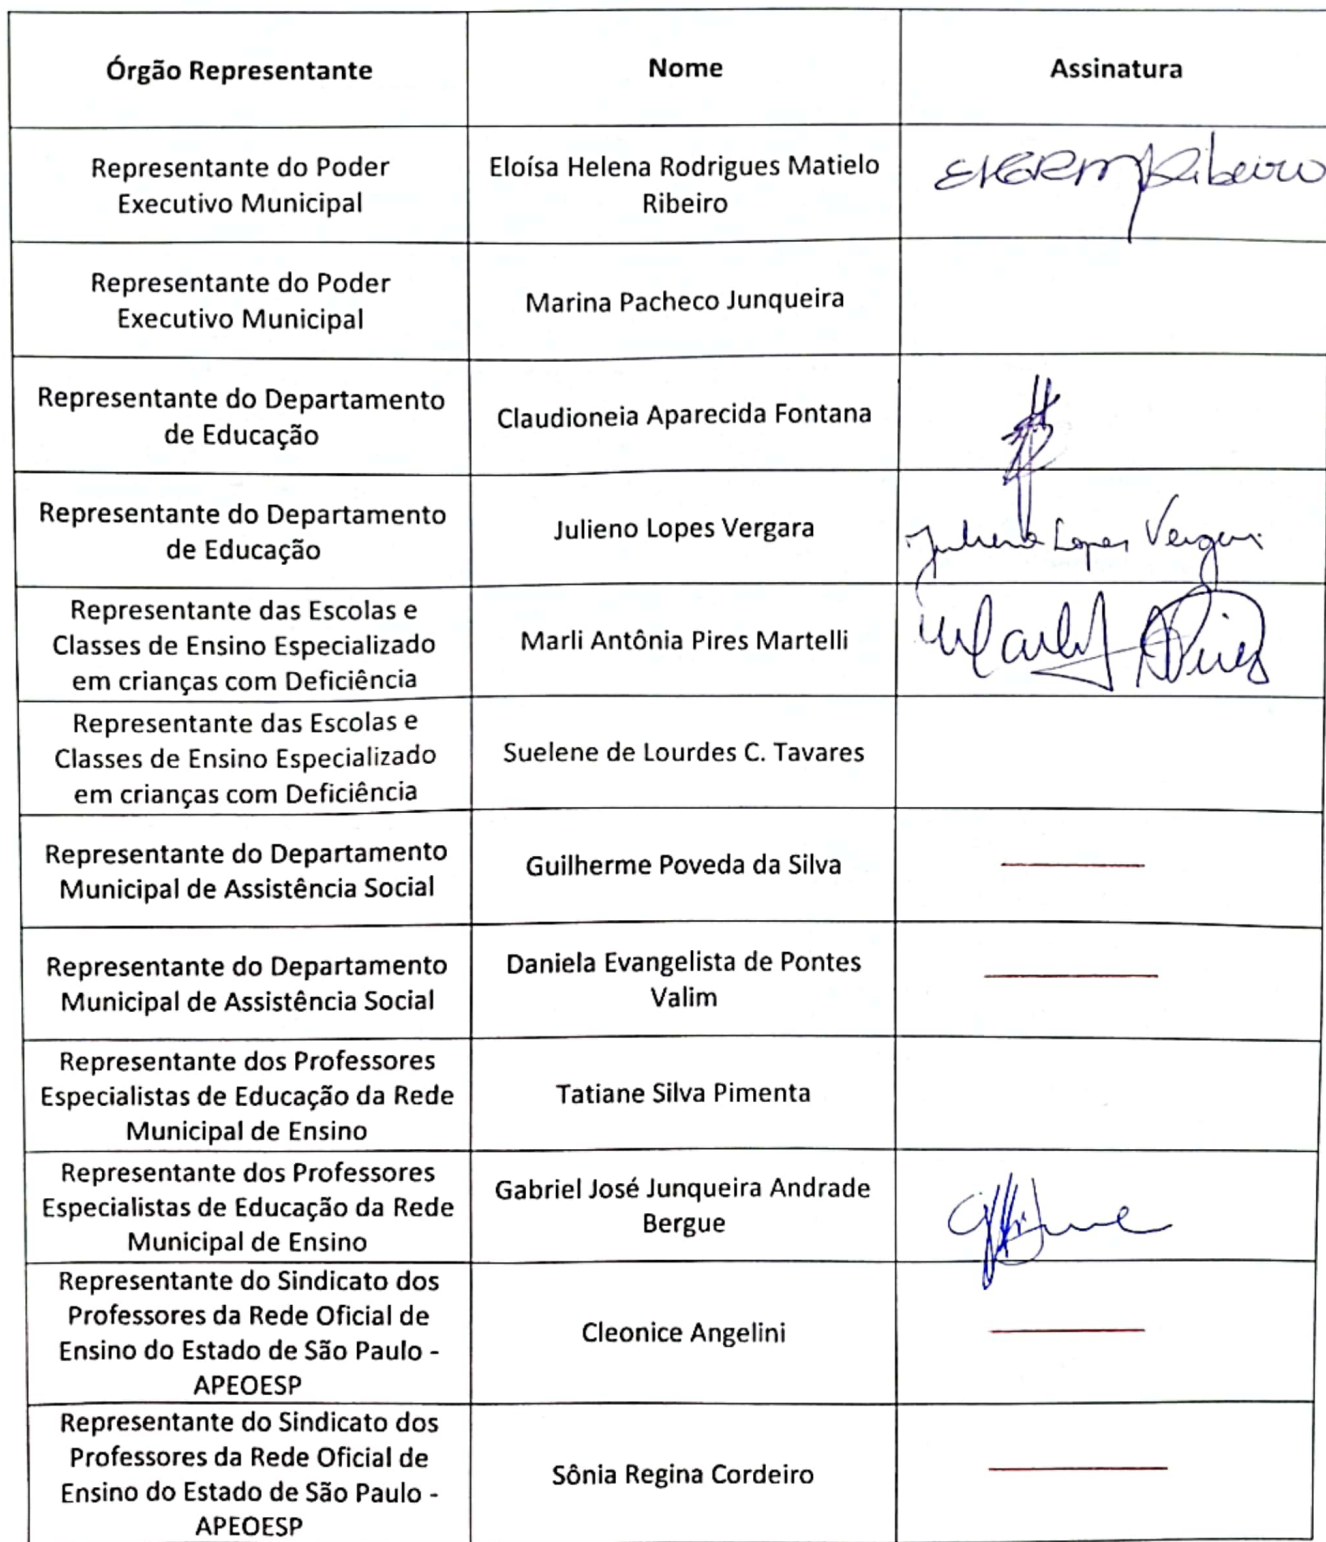 Órgão Representante
Nome
Assinatura
Representante do Poder
Executivo Municipal
Eloísa Helena Rodrigues Matielo
Ribeiro
EHRM Ribeiro
Representante do Poder
Executivo Municipal
Marina Pacheco Junqueira
Representante do Departamento
de Educação
Claudioneia Aparecida Fontana
Representante do Departamento
de Educação
Julieno Lopes Vergara
Julieno Lopes Vergara
Representante das Escolas e
Classes de Ensino Especializado
em crianças com Deficiência
Marli Antônia Pires Martelli
Marli A Pires
Representante das Escolas e
Classes de Ensino Especializado
em crianças com Deficiência
Suelene de Lourdes C. Tavares
Representante do Departamento
Municipal de Assistência Social
Guilherme Poveda da Silva
Representante do Departamento
Municipal de Assistência Social
Daniela Evangelista de Pontes
Valim
Representante dos Professores
Especialistas de Educação da Rede
Municipal de Ensino
Tatiane Silva Pimenta
Representante dos Professores
Especialistas de Educação da Rede
Municipal de Ensino
Gabriel José Junqueira Andrade
Bergue
Representante do Sindicato dos
Professores da Rede Oficial de
Ensino do Estado de São Paulo -
APEOESP
Cleonice Angelini
Representante do Sindicato dos
Professores da Rede Oficial de
Ensino do Estado de São Paulo -
APEOESP
Sônia Regina Cordeiro